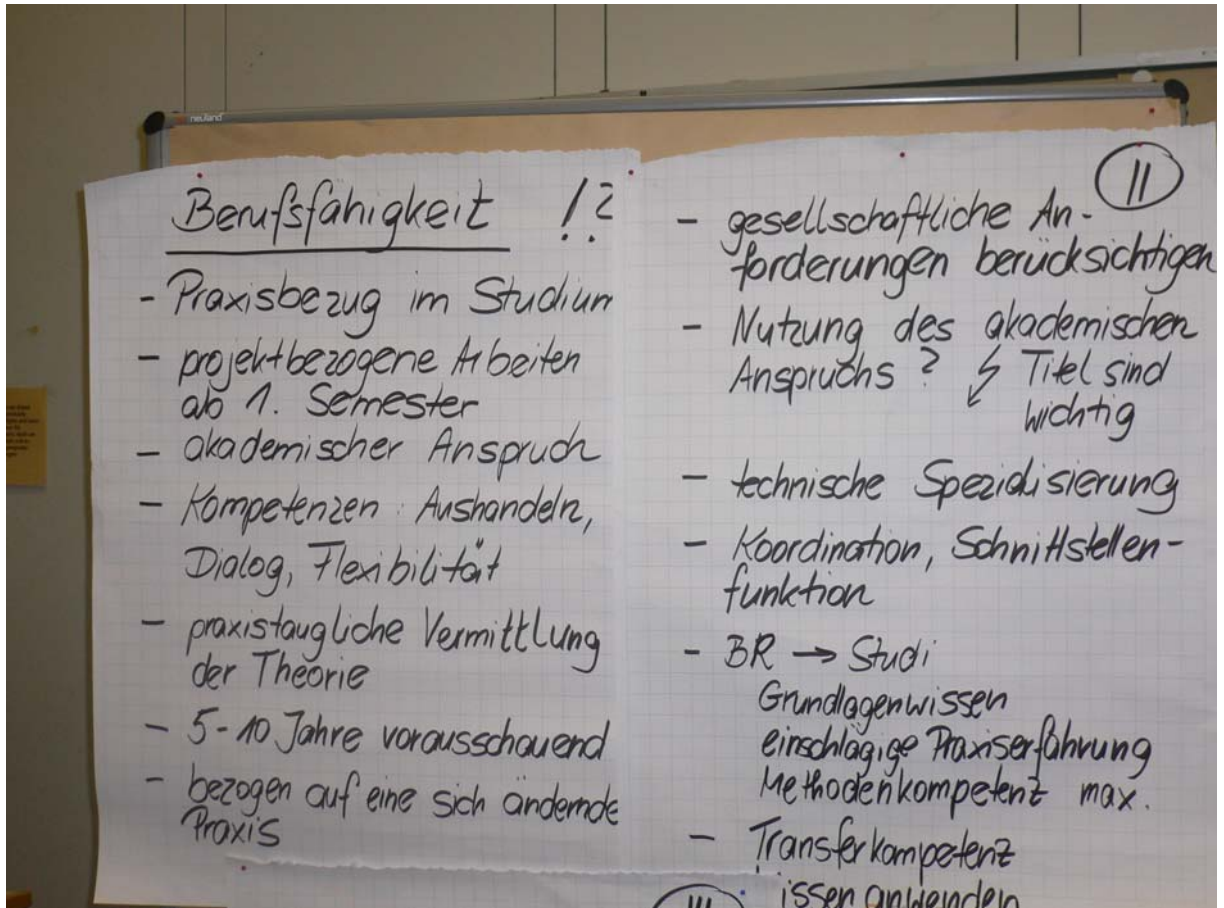 neuland
Berufsfähigkeit !?
- Praxisbezug im Studium
- projektbezogene Arbeiten
ab 1. Semester
- akademischer Anspruch
- Kompetenzen: Aushandeln,
Dialog, Flexibilität
- praxistaugliche Vermittlung
der Theorie
- 5-10 Jahre vorausschauend
- bezogen auf eine sich ändernde
Praxis
II
- gesellschaftliche An-
forderungen berücksichtigen
- Nutzung des akademischen
Anspruchs? Titel sind
wichtig
- technische Spezialisierung
- Koordination, Schnittstellen-
funktion
- BR → Studi
Grundlagenwissen
einschlägige Praxiserfahrung
Methodenkompetenz max.
- Transferkompetenz
issen anwenden
III